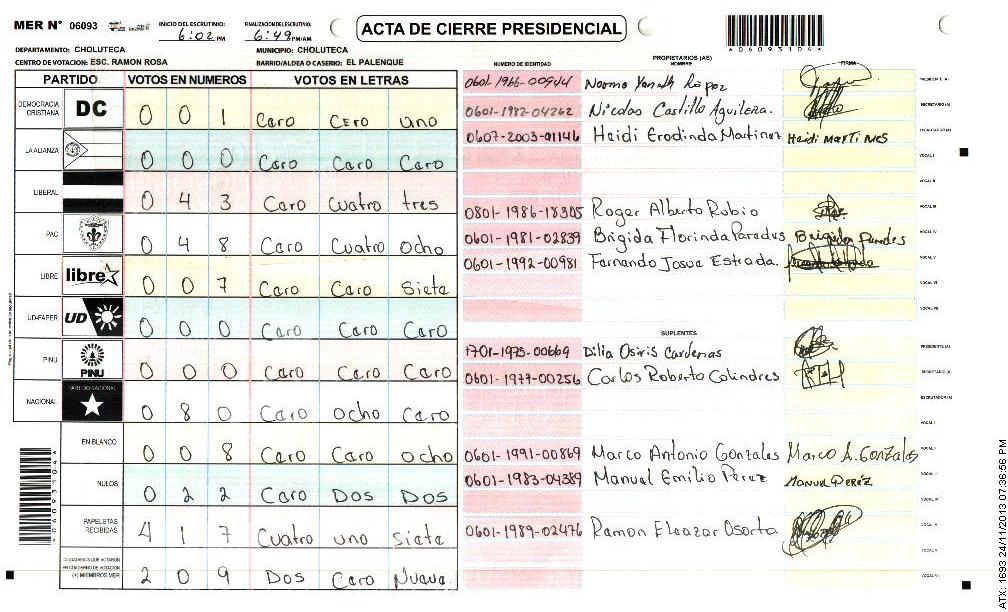 MER N° 06093
INICIO DEL ESCRUTINIO: 6:02 PM
FINALIZACION DEL ESCRUTINIO: 6:49 PM/AM
ACTA DE CIERRE PRESIDENCIAL
*06093104*
DEPARTAMENTO: CHOLUTECA
MUNICIPIO: CHOLUTECA
CENTRO DE VOTACION: ESC. RAMON ROSA
BARRIO/ALDEA O CASERIO: EL PALENQUE
PARTIDO VOTOS EN NUMEROS VOTOS EN LETRAS
DEMOCRACIA CRISTIANA DC 0 0 1 Caro Cero uno
LA ALIANZA 0 0 0 Caro Caro Caro
LIBERAL 0 4 3 Caro Cuatro tres
PAC 0 4 8 Caro Cuatro ocho
LIBRE libre 0 0 7 Caro Caro Siete
UD-FAPER UD 0 0 0 Caro Caro Caro
PINU PINU 0 0 0 Caro Caro Caro
NACIONAL PARTIDO NACIONAL 0 8 0 Caro ocho Caro
EN BLANCO 0 0 8 Caro Caro ocho
NULOS 0 2 2 Caro Dos Dos
PAPELETAS RECIBIDAS 4 1 7 Cuatro uno Siete
CIUDADANOS QUE VOTARON EN CUADERNO DE VOTACION (+) MIEMBROS MER 2 0 9 Dos Caro Nueve
*06093104*
PROPIETARIOS (AS)
NUMERO DE IDENTIDAD NOMBRE FIRMA
0601-1966-00944 Norma Yaneth López PRESIDENTE (A)
0601-1982-04262 Nicolas Castillo Aguilera. SECRETARIO (A)
0607-2003-01146 Heidi Erodinda Martinez Heidi MARTINES ESCRUTADOR (A)
VOCAL I
VOCAL II
0801-1986-18305 Roger Alberto Rubio VOCAL III
0601-1981-02839 Brigida Florinda Paradas Brigida Paredes VOCAL IV
0601-1992-00981 Fernando Josue Estrada. VOCAL V
VOCAL VI
VOCAL VII
SUPLENTES
1701-1975-00669 Dilia Osiris Cardenas PRESIDENTE (A)
0601-1977-00256 Carlos Roberto Colindres SECRETARIO (A)
ESCRUTADOR (A)
VOCAL I
0601-1991-00869 Marco Antonio Gonzales Marco A. Gonzales VOCAL II
0601-1983-04389 Manuel Emilio Perez Manuel Perez VOCAL III
VOCAL IV
0601-1989-02476 Ramon Eleazar Osorto VOCAL V
VOCAL VI
VOCAL VII
ATX: 1693 24/11/2013 07:36:56 PM